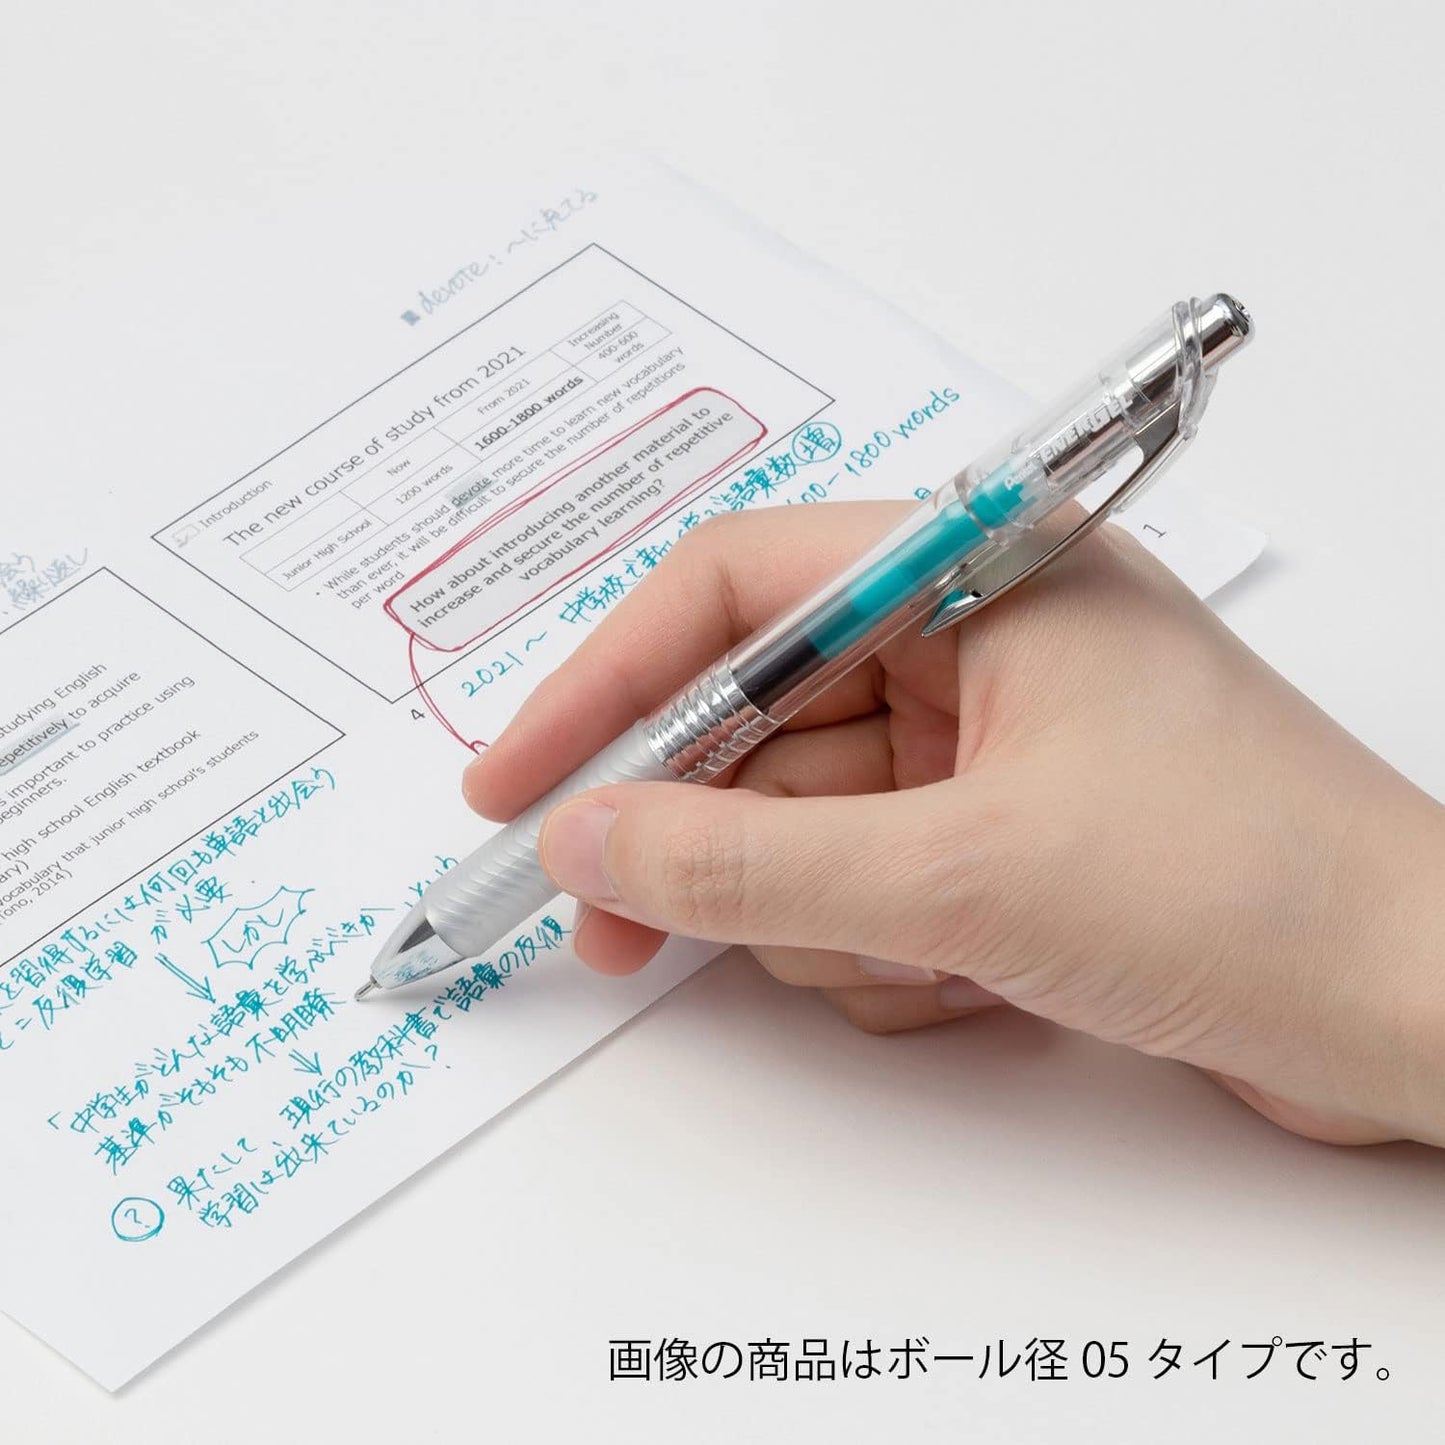 ■devote：〜に充てる
Introduction
The new course of study from 2021
Now
From 2021
Increasing
Number
Junior High School
1200 words
1600-1800 words
400-600
words
・While students should devote more time to learn new vocabulary
than ever, it will be difficult to secure the number of repetitions
per word
How about introducing another material to
increase and secure the number of repetitive
vocabulary learning?
4
2021〜 中学校で新しく学ぶ語彙数 増
00-1800 words
1
ENERGEL
tudying English
epetitively to acquire
s important to practice using
eginners.
high school English textbook
ary)
vocabulary that junior high school's students
ono, 2014)
を習得するには何回も単語と出会う
反復学習 が 必要
しかし
「中学生がどんな語彙を学ぶべきか
基準がそもそも不明瞭
現行の教科書で語彙の反復
? 果たして
学習は出来ているのか?
画像の商品はボール径 05 タイプです。